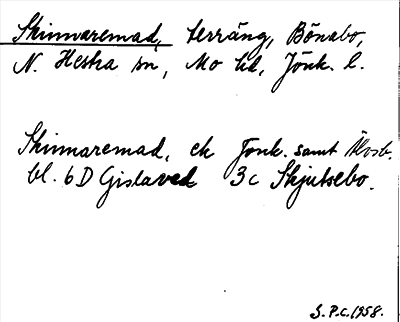 Skinnaremad, terräng, Bönabo,
N. Hestra sn, Mo hd, Jönk. l.
Skinnaremad, ek Jönk. samt Älvsb.
bl. 6 D Gislaved 3c Skjutsebo.
S.P.C. 1958.